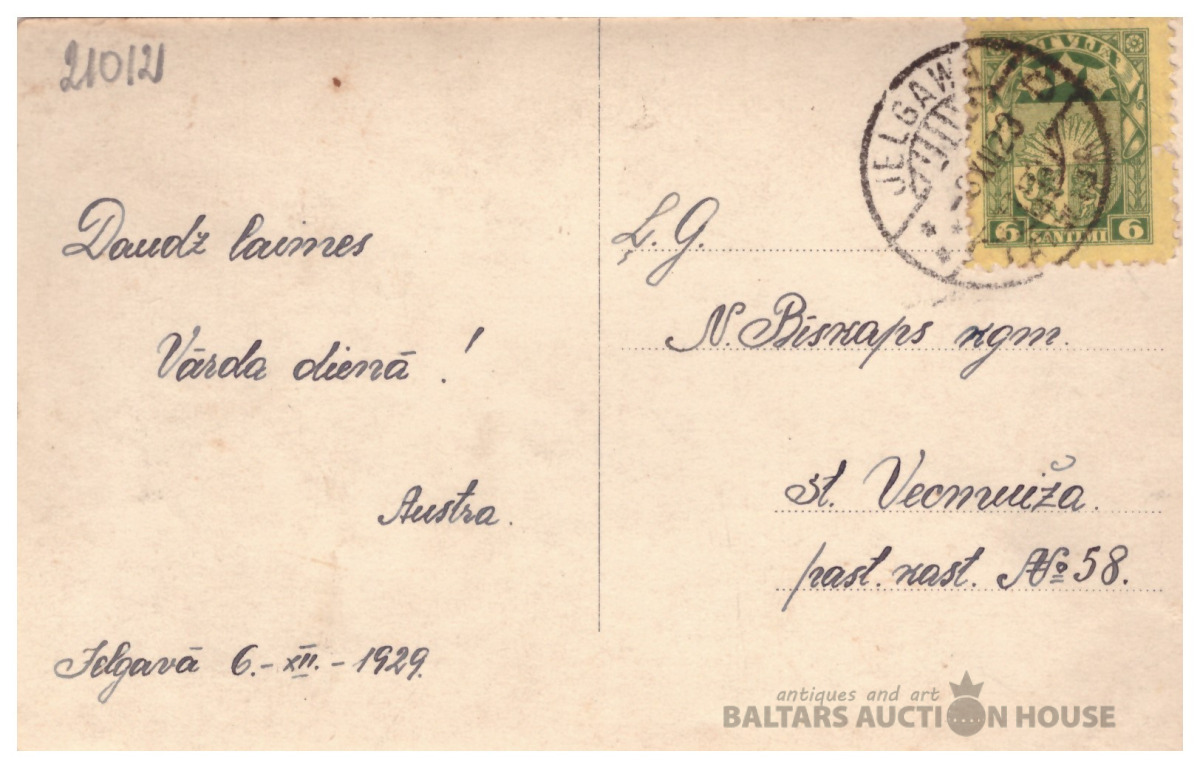 210121
Daudž laimes
Vārda dienā!
Austra.
Jelgavā 6.-XII.-1929.
Ļ. G.
N. Bīskaps kgm.
st. Vecmuiža.
past. kast. № 58.
JELGAWA
LATVIJA
6 SANTIMI 6
antiques and art
BALTARS AUCTION HOUSE